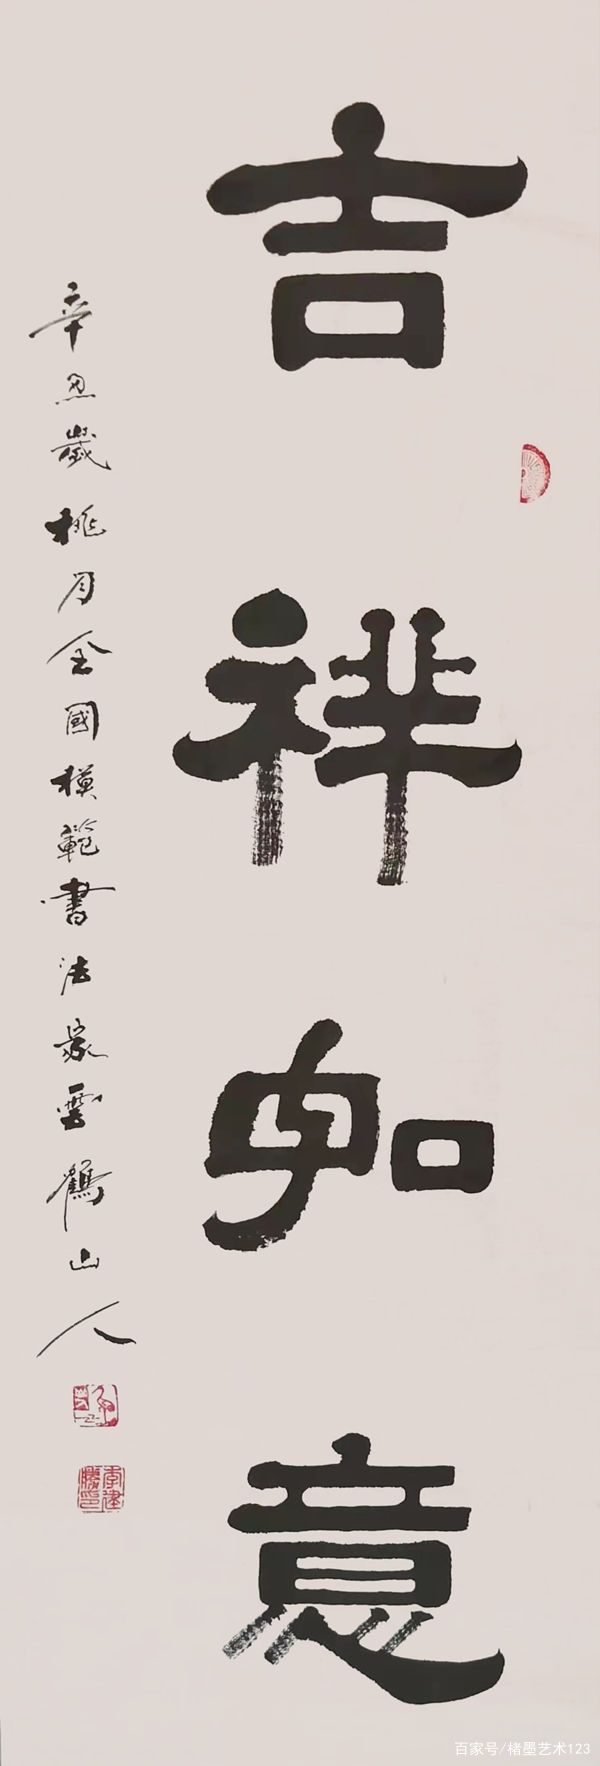 吉祥如意
辛丑歲桃月全國模範書法家雲鶴山人
李建勝印
百家号/楮墨艺术123